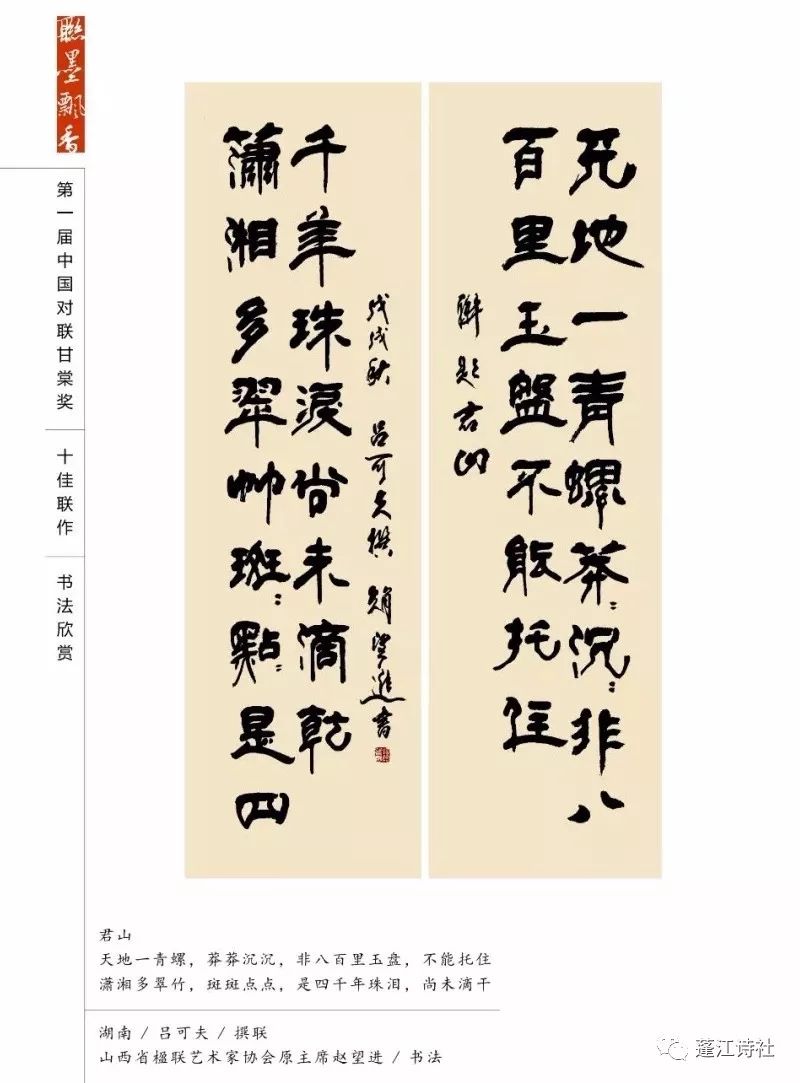 聯墨飄香
第一届中国对联甘棠奖
十佳联作
书法欣赏
天地一青螺莽:沉:非八
百里玉盤不能托住
聯題君山
瀟湘多翠竹斑:點:是四
千年珠淚尚未滴乾
戊戌秋 吕可夫撰 趙望進書
君山
天地一青螺，莽莽沉沉，非八百里玉盘，不能托住
潇湘多翠竹，斑斑点点，是四千年珠泪，尚未滴干
湖南 / 吕可夫 / 撰联
山西省楹联艺术家协会原主席赵望进 / 书法
蓬江诗社